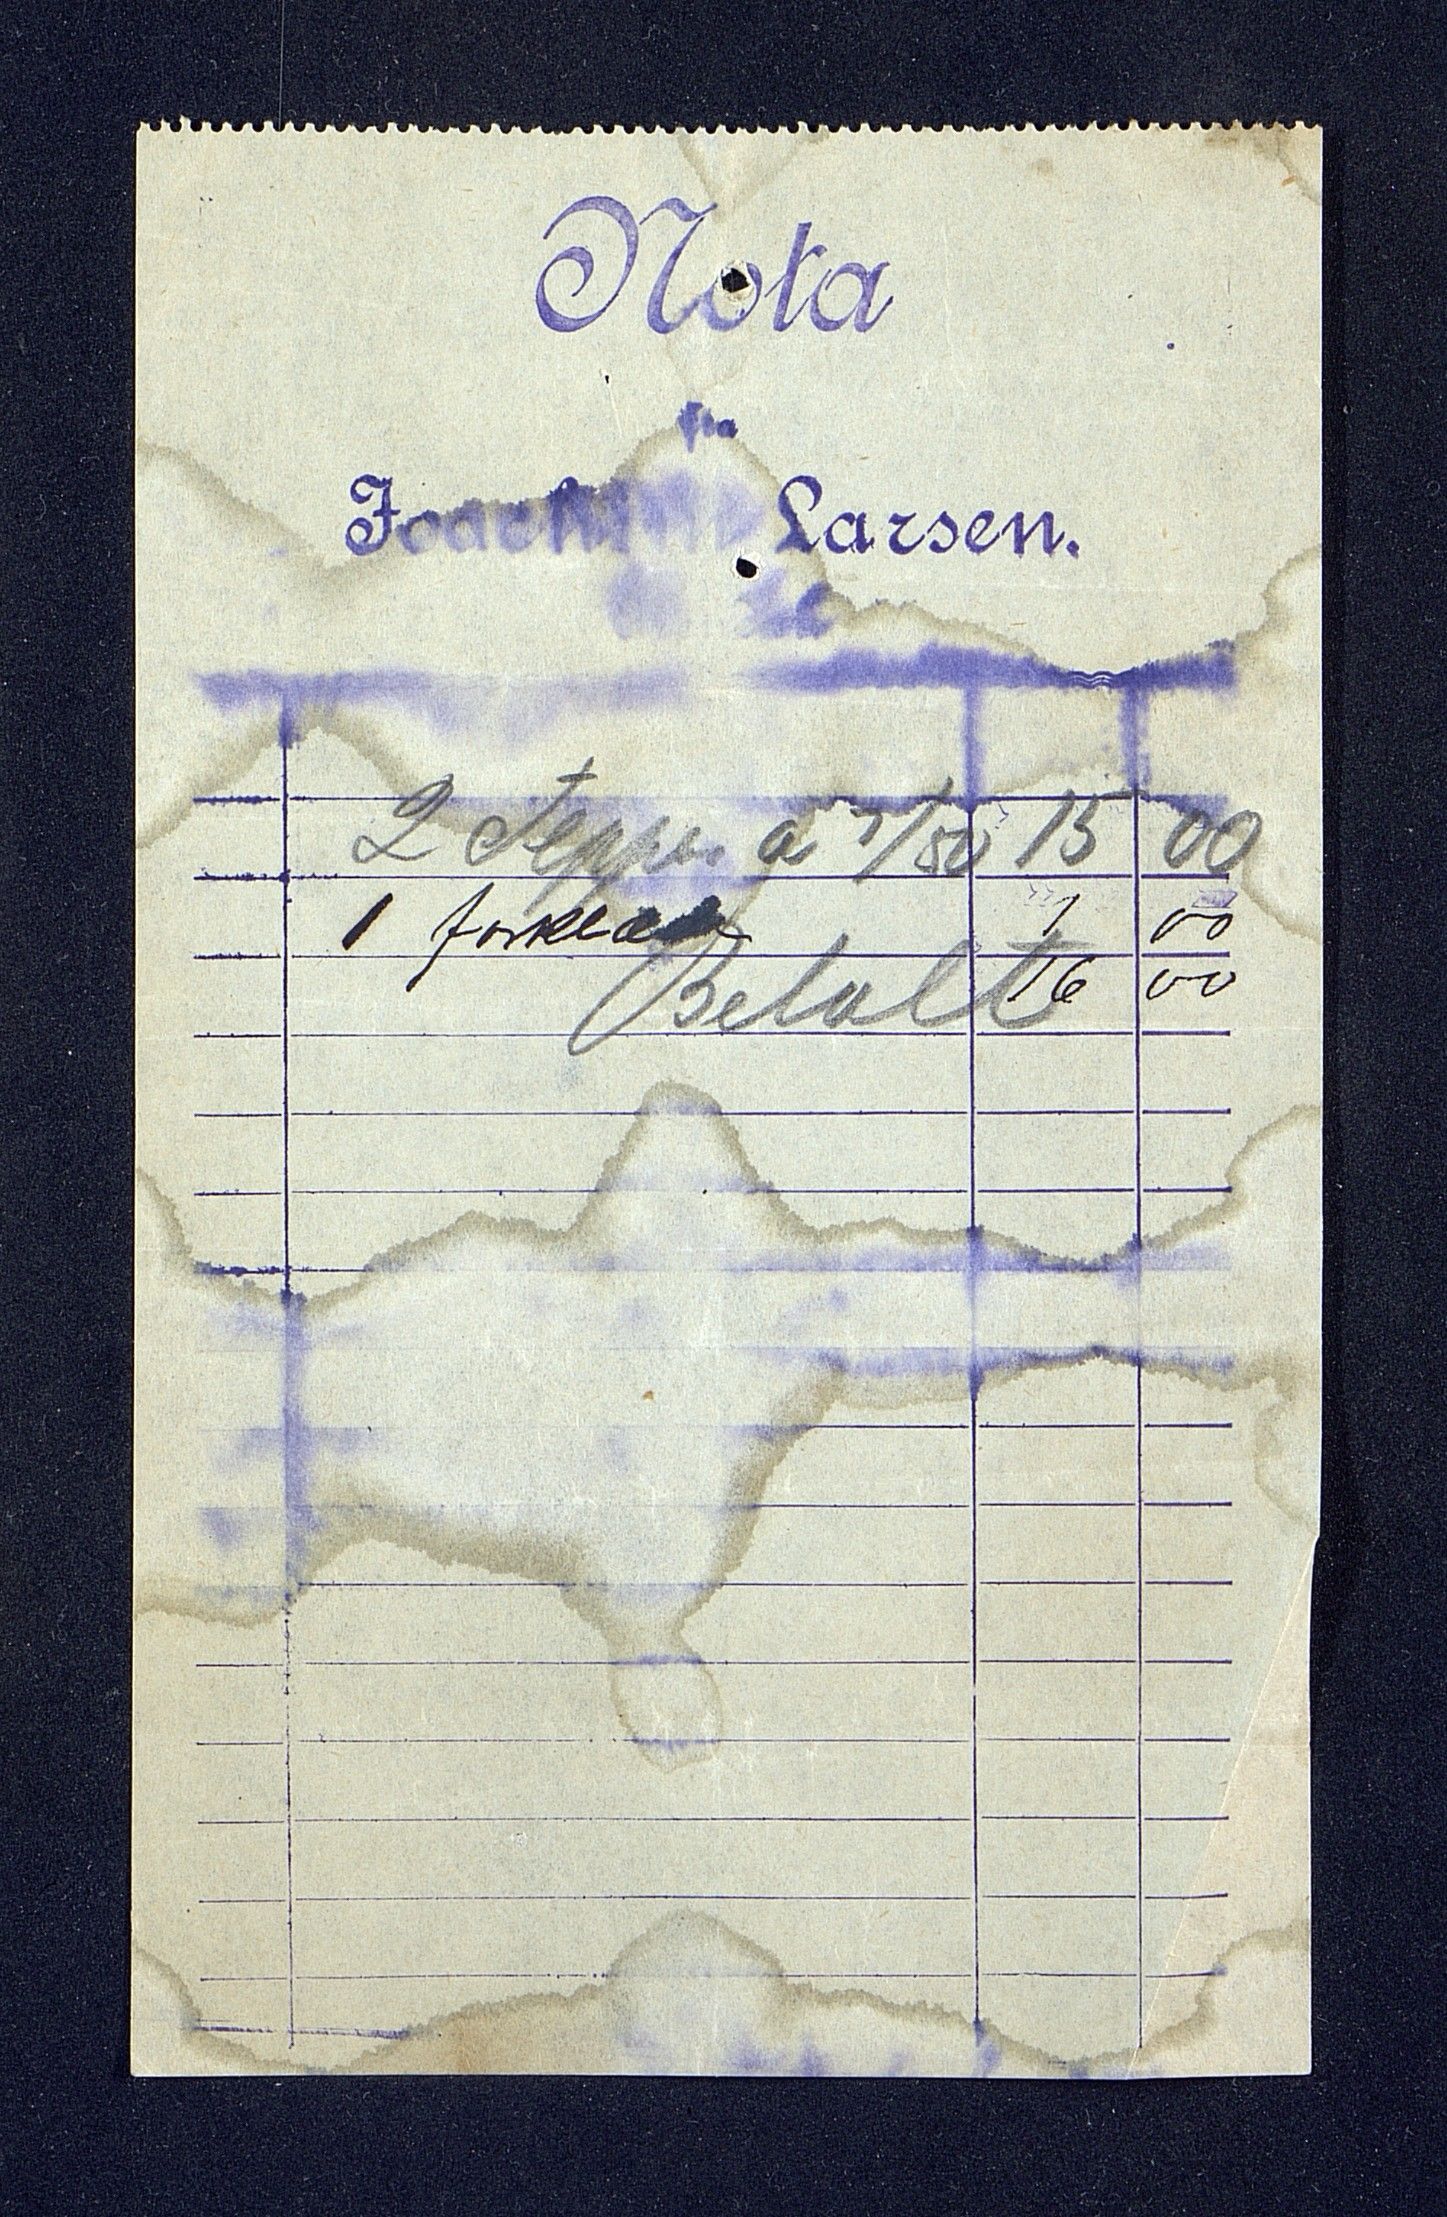 Nota
fra
Joachim Larsen.
2 Tepper a 7/50 15 00
1 forklæ 1 00
Betalt 16 00